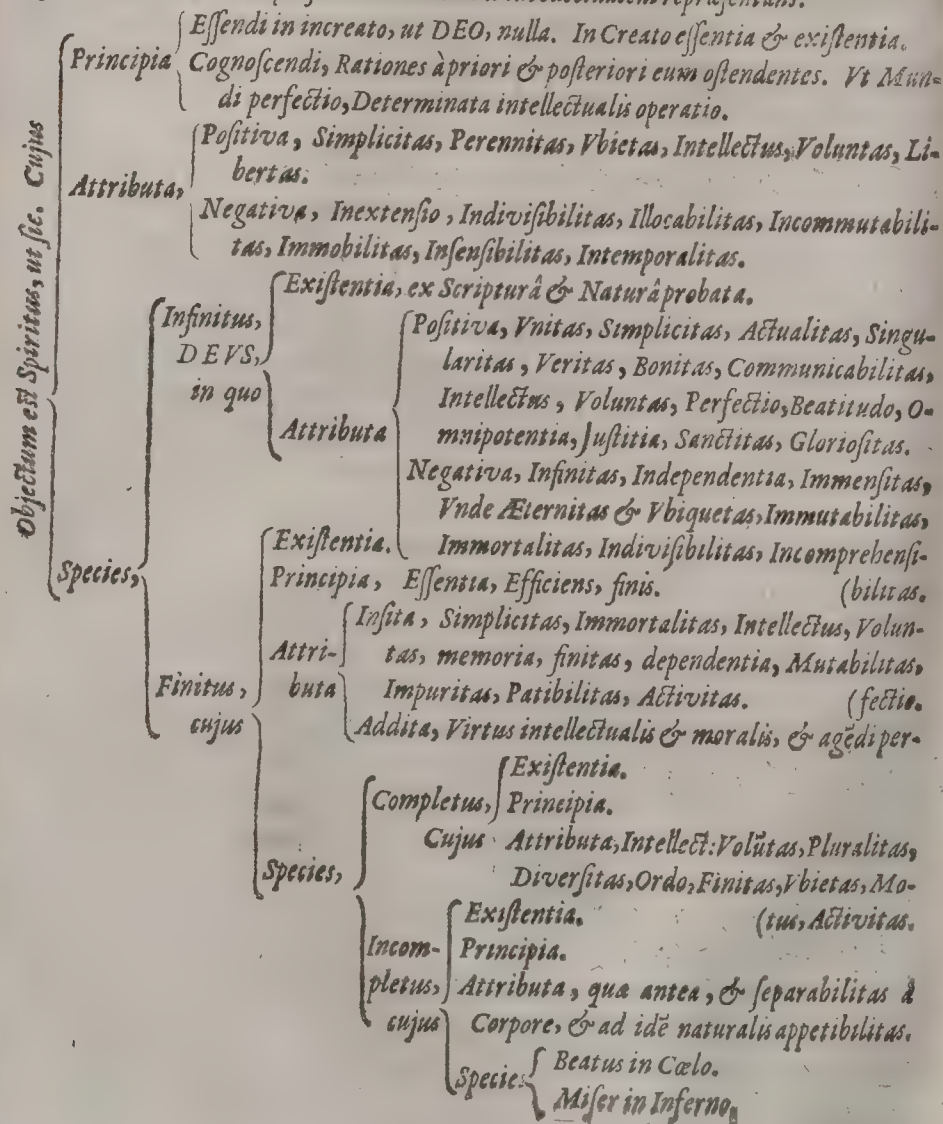 repræsentans.
Objectum est Spiritus, ut sic. Cujus
Principia
Essendi in increato, ut DEO, nulla. In Creato essentia & existentia.
Cognoscendi, Rationes à priori & posteriori eum ostendentes. Vt Mun-
di perfectio, Determinata intellectualis operatio.
Attributa,
Positiva, Simplicitas, Perennitas, Vbietas, Intellectus, Voluntas, Li-
bertas.
Negativa, Inextensio, Indivisibilitas, Illocabilitas, Incommutabili-
tas, Immobilitas, Insensibilitas, Intemporalitas.
Species,
Infinitus,
DEVS,
in quo
Existentia, ex Scripturâ & Naturâ probata.
Attributa
Positiva, Vnitas, Simplicitas, Actualitas, Singu-
laritas, Veritas, Bonitas, Communicabilitas,
Intellectus, Voluntas, Perfectio, Beatitudo, O-
mnipotentia, Justitia, Sanctitas, Gloriositas.
Negativa, Infinitas, Independentia, Immensitas,
Vnde Æternitas & Vbiquetas, Immutabilitas,
Immortalitas, Indivisibilitas, Incomprehensi-
(bilitas.
Finitus,
cujus
Existentia.
Principia, Essentia, Efficiens, finis.
Attri-
buta
Insita, Simplicitas, Immortalitas, Intellectus, Volun-
tas, memoria, finitas, dependentia, Mutabilitas,
Impuritas, Patibilitas, Activitas.
(fectio.
Addita, Virtus intellectualis & moralis, & agēdi per-
Species,
Completus,
Cujus
Existentia.
Principia.
Attributa, Intellect: Volūtas, Pluralitas,
Diversitas, Ordo, Finitas, Vbietas, Mo-
(tus, Activitas.
Incom-
pletus,
cujus
Existentia.
Principia.
Attributa, qua antea, & separabilitas à
Corpore, & ad idē naturalis appetibilitas.
Species
Beatus in Cœlo.
Miser in Inferno.